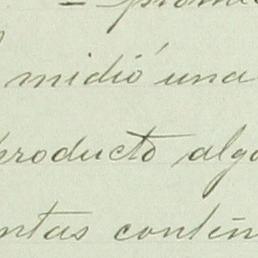 = prome
midió una
producto alg
ntas contin